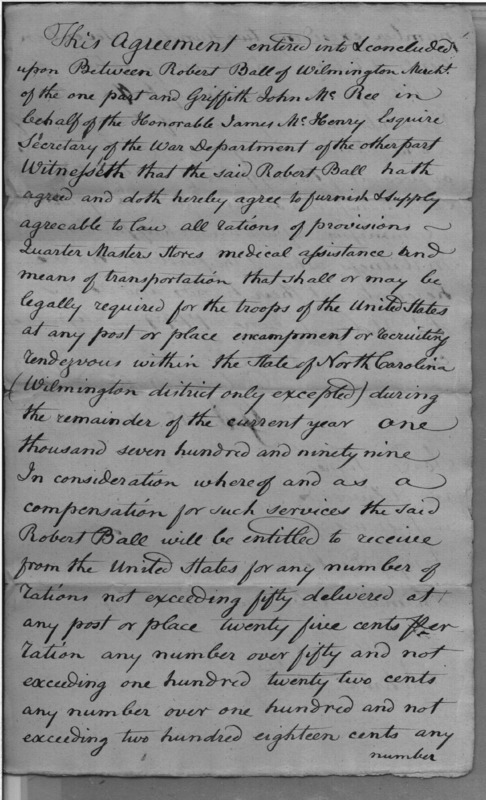 This Agreement entered into & concluded
upon Between Robert Ball of Wilmington Mercht.
of the one part and Griffith John Mc Ree in
behalf of the Honorable James Mc Henry Esquire
Secretary of the War Department of the other part
Witnesseth that the said Robert Ball hath
agreed and doth hereby agree to furnish & supply
agreeable to law all rations of provisions ~
Quarter Masters Stores medical assistance and
means of transportation that shall or may be
legally required for the troops of the United States
at any post or place encampment or recruiting
rendezvous within the State of North Carolina
(Wilmington district only excepted) during
the remainder of the current year one
thousand seven hundred and ninety nine
In consideration whereof and as a
compensation for such services the said
Robert Ball will be entitled to receive
from the United States for any number of
rations not exceeding fifty delivered at
any post or place twenty five cents Per
ration any number over fifty and not
exceeding one hundred twenty two cents
any number over one hundred and not
exceeding two hundred eighteen cents any
number